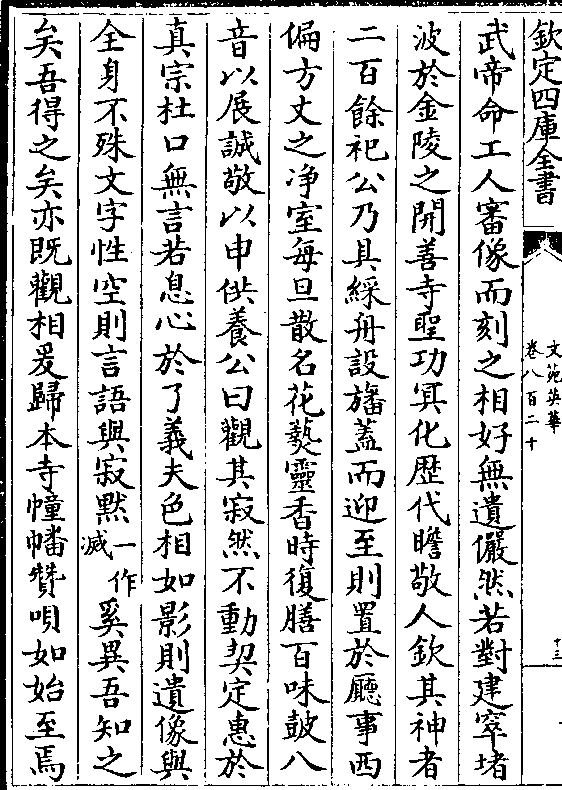 欽定四庫全書
文苑英華
卷八百二十
十三
武帝命工人審像而刻之相好無遺儼然若對建窣堵
波於金陵之開善寺聖功冥化歴代瞻敬人欽其神者
二百餘祀公乃具綵舟設旛蓋而迎至則置於廳事西
偏方丈之净室每旦散名花爇靈香時復膳百味鼓八
音以展誠敬以申供養公曰觀其寂然不動契定惠於
真宗杜口無言若息心於了義夫色相如影則遺像與
全身不殊文字性空則言語與寂黙一作滅奚異吾知之
矣吾得之矣亦既觀相爰歸本寺幢幡贊唄如始至焉